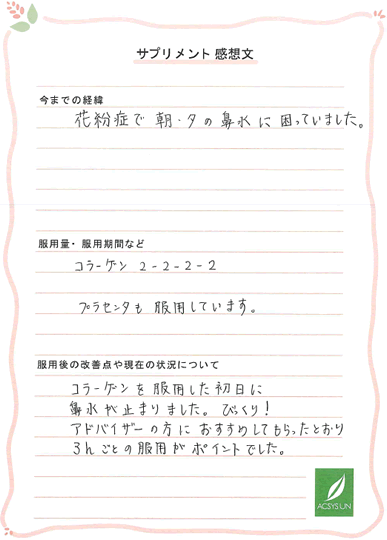 サプリメント 感想文
今までの経緯
花粉症で 朝・夕の鼻水に困っていました。
服用量・服用期間など
コラーゲン 2-2-2-2
プラセンタも 服用しています。
服用後の改善点や現在の状況について
コラーゲンを服用した初日に
鼻水が止まりました。びっくり!
アドバイザーの方におすすめしてもらったとおり
3hごとの服用がポイントでした。
ACSYSUN